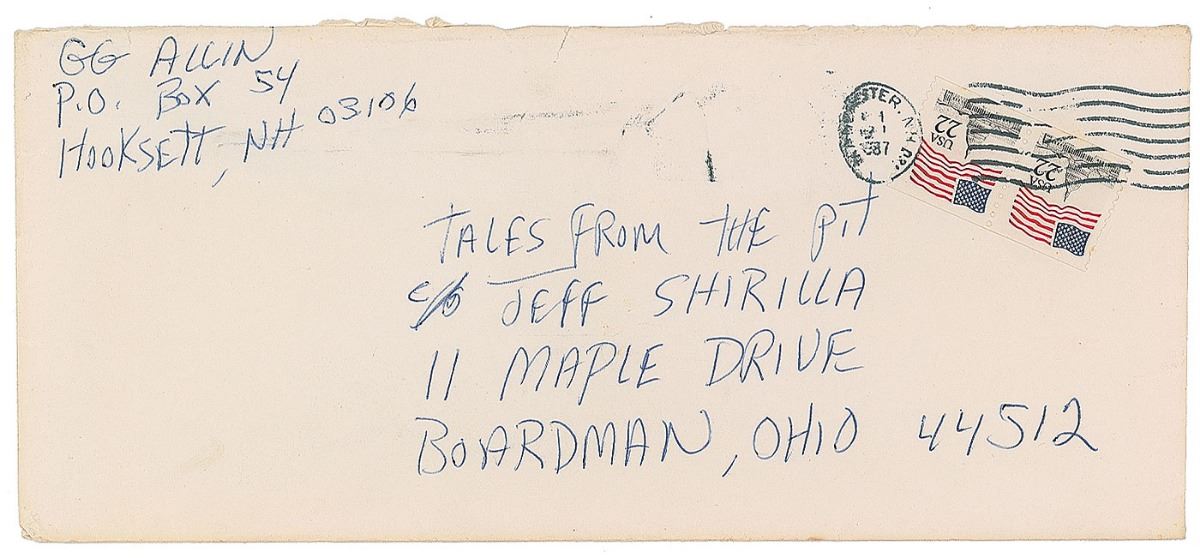 GG ALLIN
P.O. BOX 54
HOOKSETT, NH 03106
TALES FROM THE PIT
c/o JEFF SHIRILLA
11 MAPLE DRIVE
BOARDMAN, OHIO 44512
N.H.
1987
USA
22
USA
22